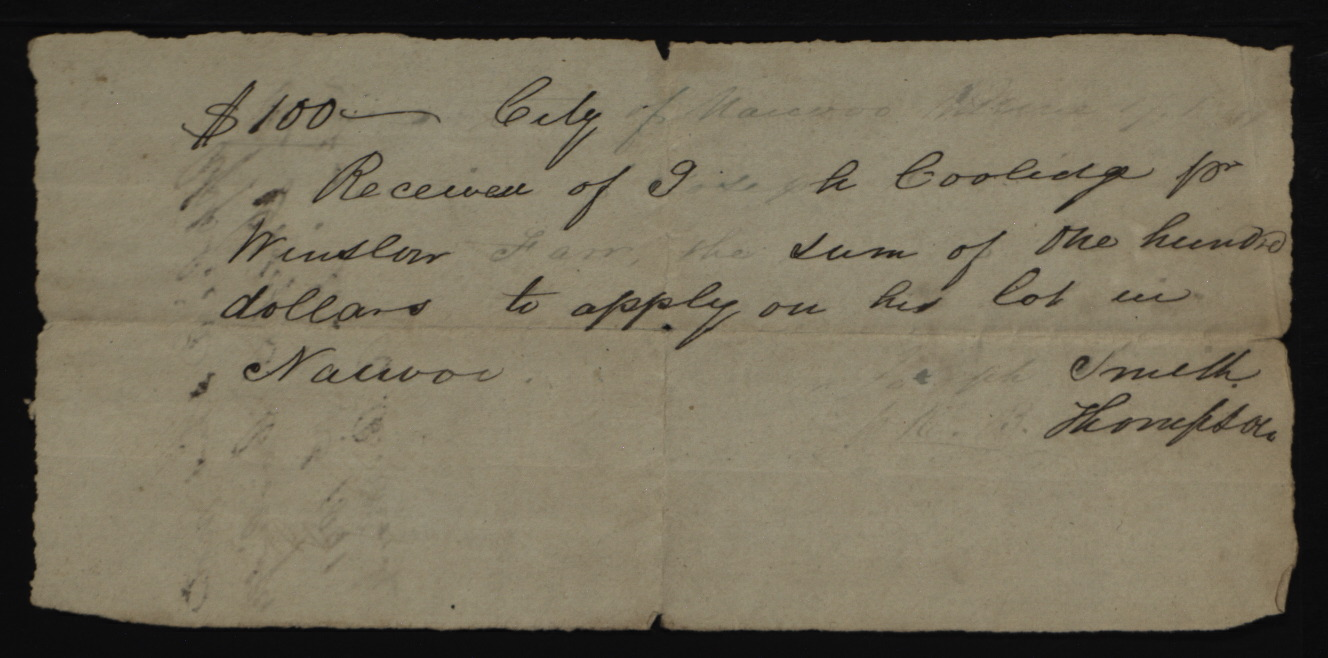 $100 City of Nauvoo
Received of Joseph Coolidge pr
Winslow Farr, the sum of One hundrd
dollars to apply on his lot in
Nauvoo. Joseph Smith
Thompson